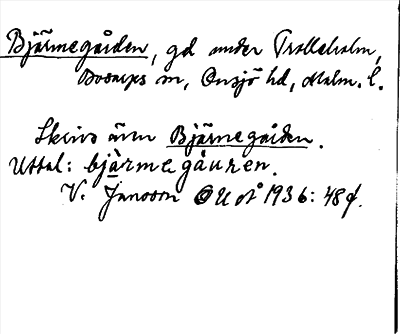 Bjärmegården, gd under Trolleholm,
Bosarps sn, Onsjö hd, Malm. l.
Skrivs även Bjärnegården.
Uttal: bjärmegåuren.
V. Jansson OUoÅ 1936: 48 f.